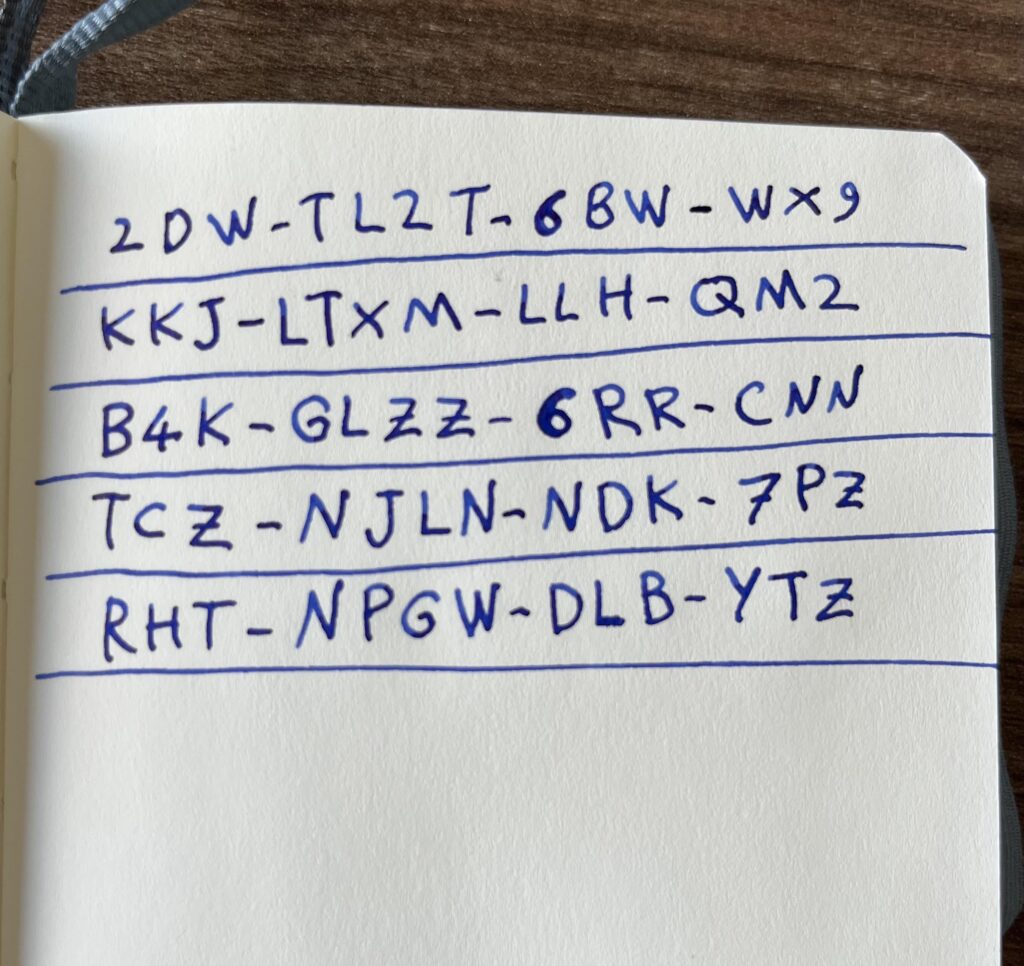 2DW-TL2T-6BW-WX9
KKJ-LTXM-LLH-QM2
B4K-GLZZ-6RR-CNN
TCZ-NJLN-NDK-7PZ
RHT-NPGW-DLB-YTZ